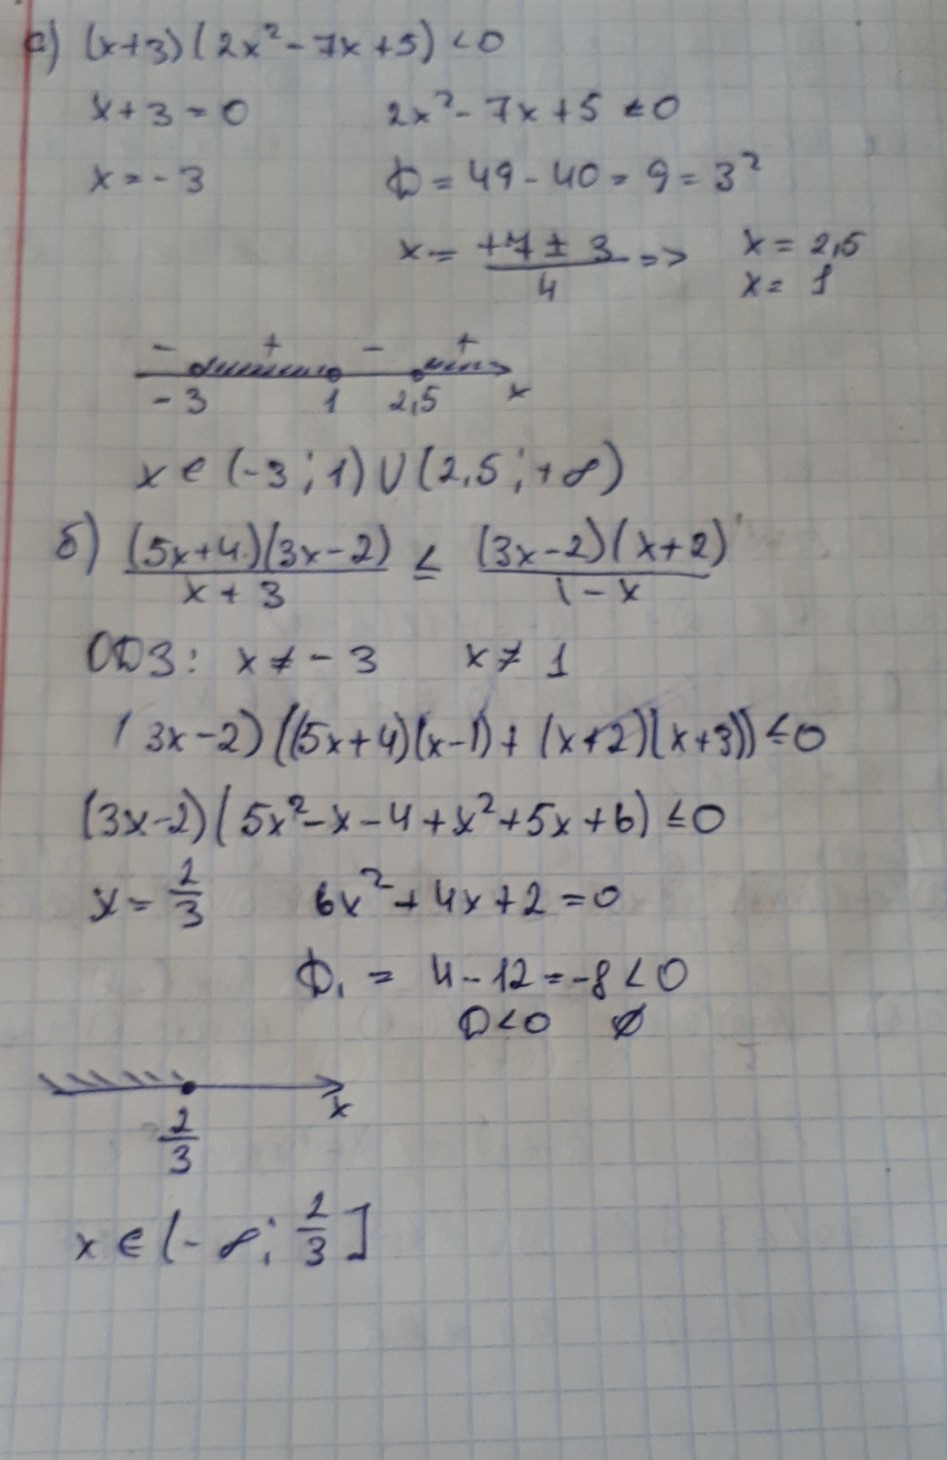 а) (x+3)(2x²-7x+5) <0
x+3=0 2x²-7x+5 <0
x=-3 D=49-40=9=3²
x= (+7±3)/4 => x=2,5
x=1
- + - +
-3 1 2,5 x
x∈(-3;1)∪(2,5;+∞)
б) (5x+4)(3x-2)/(x+3) ≤ (3x-2)(x+2)/(1-x)
ОДЗ: x≠-3 x≠1
(3x-2)((5x+4)(x-1)+(x+2)(x+3))≤0
(3x-2)(5x²-x-4+x²+5x+6)≤0
x=2/3 6x²+4x+2=0
D₁ = 4-12=-8<0
D<0 ∅
x
2/3
x∈(-∞;2/3]